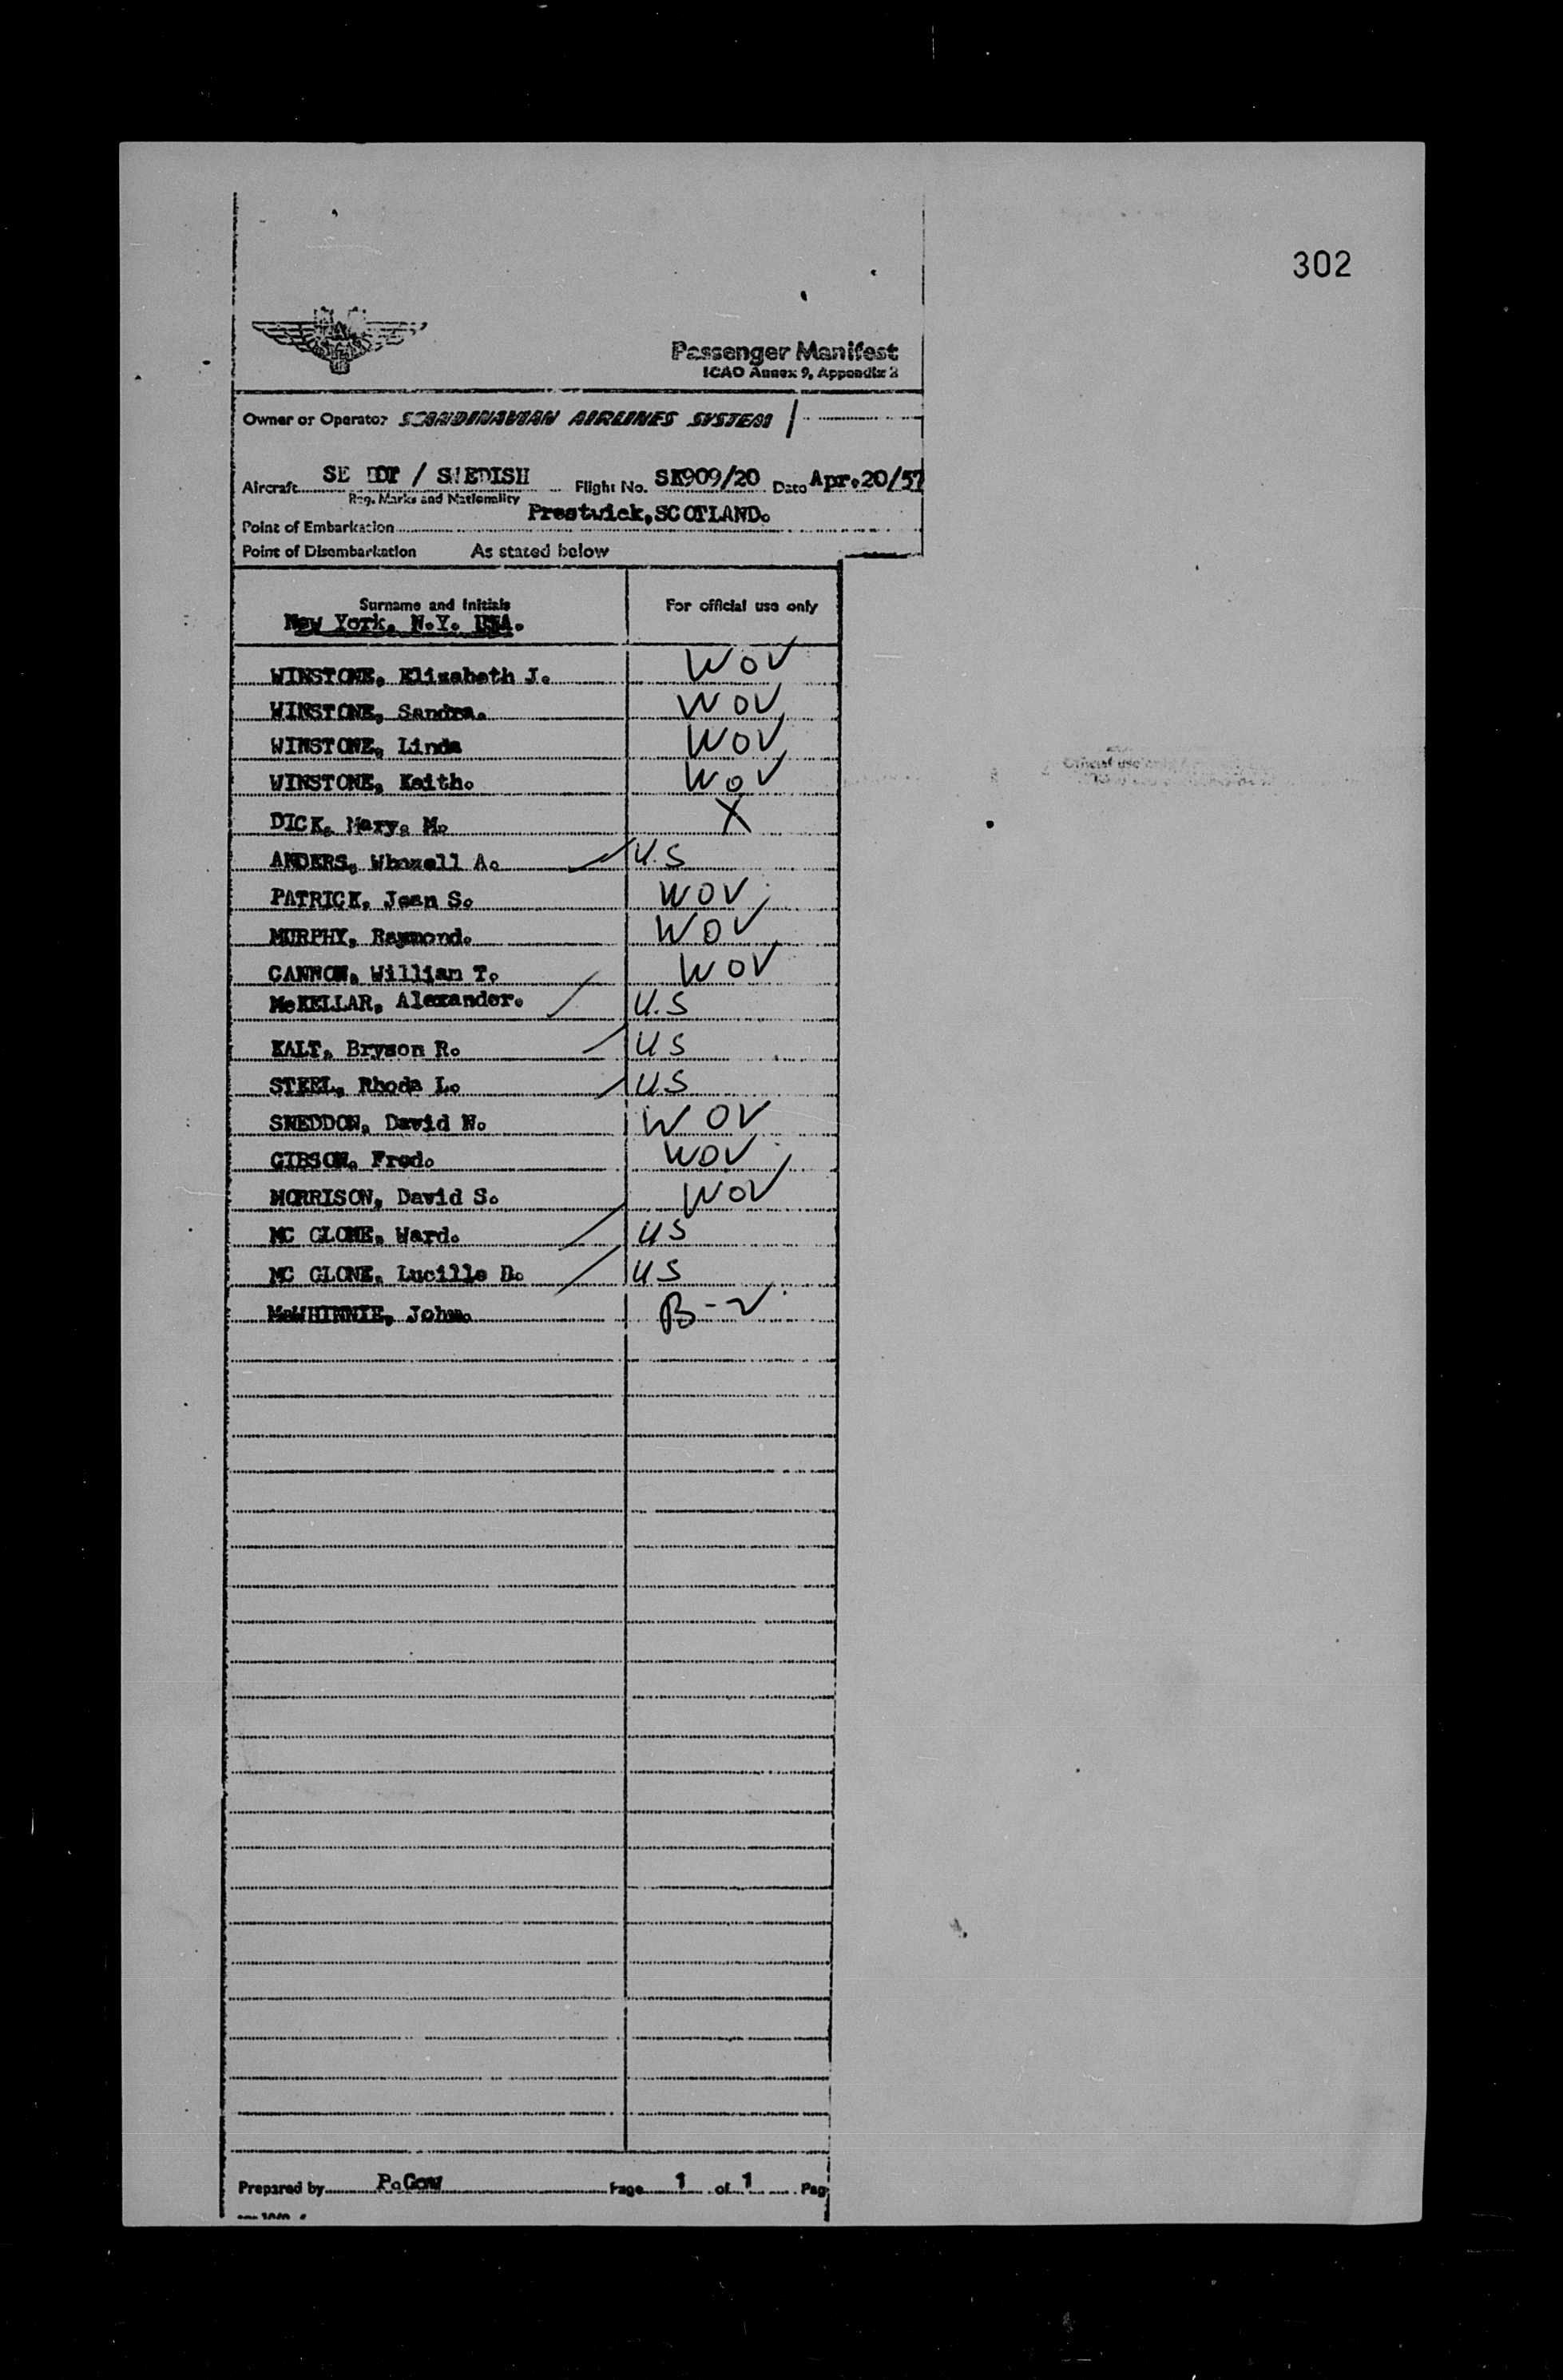 302
Passenger Manifest
ICAO Annex 9, Appendix 2
Owner or Operator SCANDINAVIAN AIRLINES SYSTEM
Aircraft SE / SWEDISH Flight No. SK909/20 Date Apr.20/57
Reg. Marks and Nationality
Prestwick, SCOTLAND.
Point of Embarkation
Point of Disembarkation As stated below
Surname and Initials For official use only
New York, N.Y. USA.
WINSTONE, Elizabeth J. WOV
WINSTONE, Sandra. WOV
WINSTONE, Linda WOV
WINSTONE, Keith. WOV
DICK, Mary. M. X
ANDERS, A. U.S
PATRICK, Jean S. WOV
MURPHY, Raymond. WOV
CANNON, William T. WOV
McKELLAR, Alexander. U.S
KALT, Bryson R. US
STEEL, Rhoda L. US
SNEDDON, David N. WOV
GIBSON, Fred. WOV
MORRISON, David S. WOV
MC GLONE, Ward. US
MC GLONE, Lucille B. US
McWHINNIE, John. B-2
Prepared by P.Gow Page 1 of 1 Pag